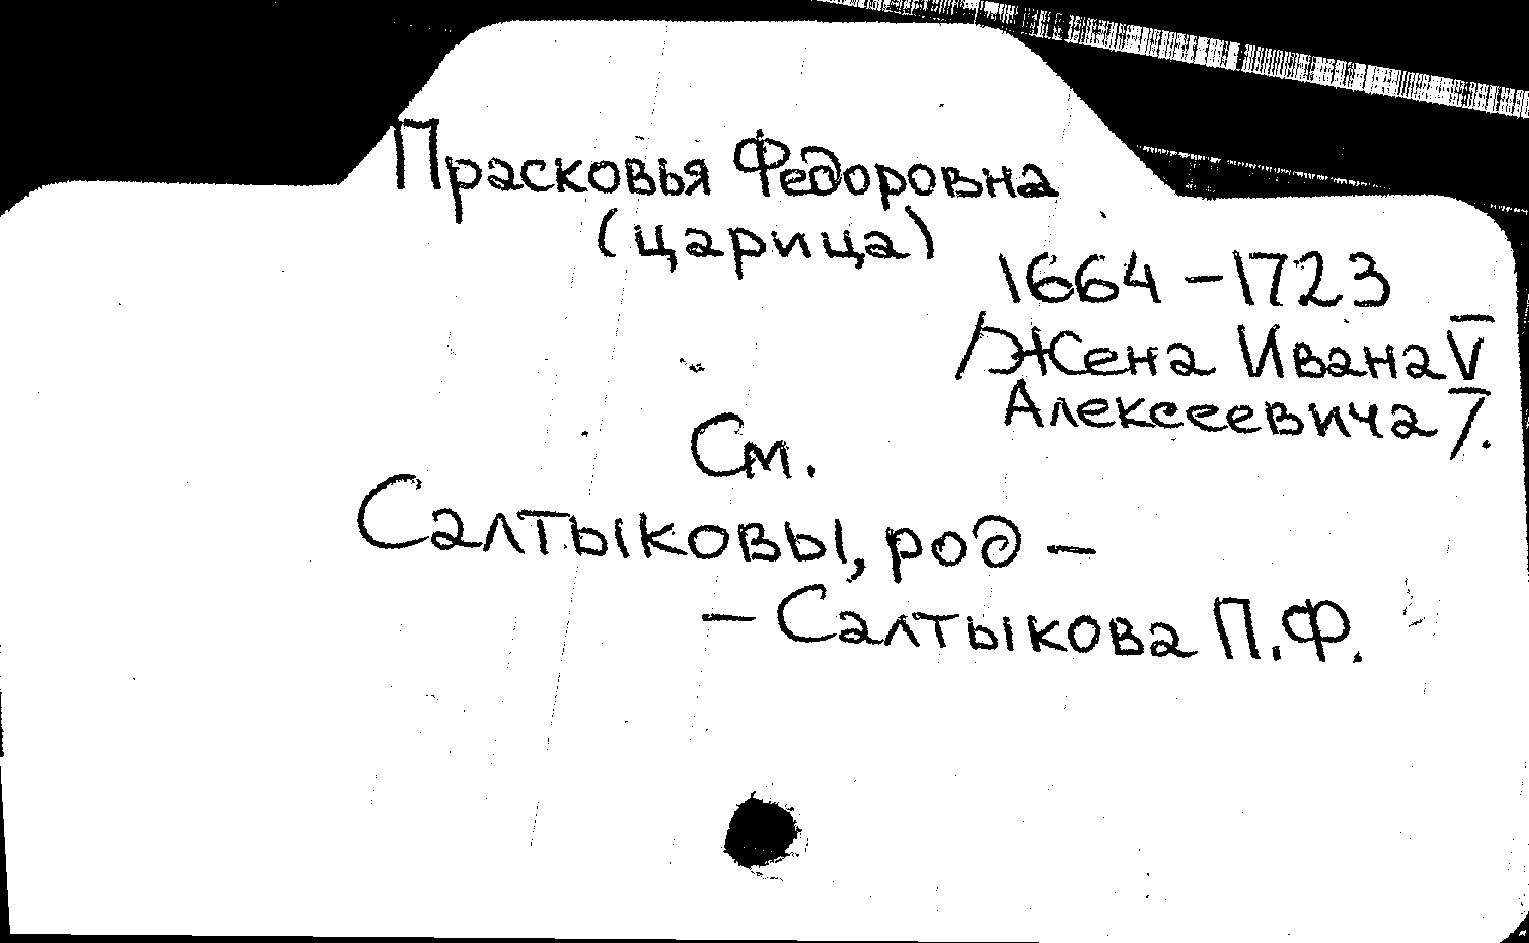 Прасковья Федоровна
(царица)
1664 – 1723
/Жена Ивана V
Алексеевича/.
См.
Салтыковы, род –
– Салтыкова П.Ф.